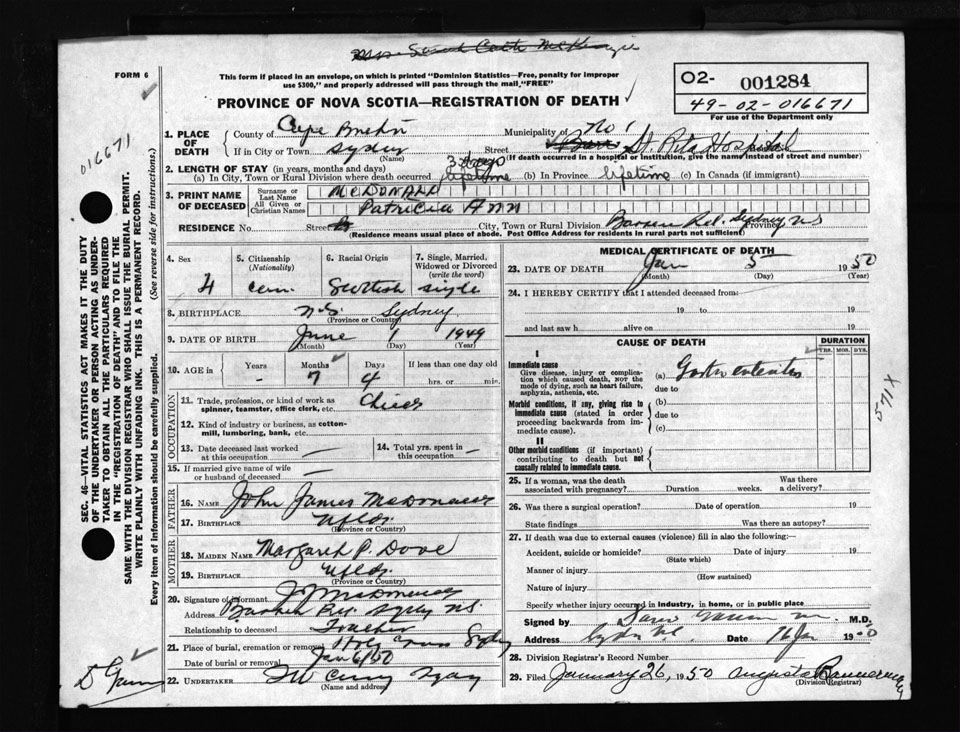 FORM 6
This form if placed in an envelope, on which is printed "Dominion Statistics—Free, penalty for improper
use $300," and properly addressed will pass through the mail, "FREE"
PROVINCE OF NOVA SCOTIA—REGISTRATION OF DEATH
O2- 001284
49-02-016671
For use of the Department only
016671
1. PLACE OF DEATH
County of Cape Breton Municipality of No 1
If in City or Town Sydney (Name) Street St. Rita Hospital
(If death occurred in a hospital or institution, give the name instead of street and number)
2. LENGTH OF STAY (in years, months and days) 3 days
(a) In City, Town or Rural Division where death occurred lifetime (b) In Province lifetime (c) In Canada (if immigrant)
3. PRINT NAME OF DECEASED
Surname or Last Name McDONALD
All Given or Christian Names Patricia Ann
RESIDENCE No. Street City, Town or Rural Division Sydney NS Province
(Residence means usual place of abode. Post Office Address for residents in rural parts not sufficient)
4. Sex
5. Citizenship (Nationality) Can.
6. Racial Origin Scottish
7. Single, Married, Widowed or Divorced (write the word) single
8. BIRTHPLACE N.S. Sydney
(Province or Country)
9. DATE OF BIRTH June 1 1949
(Month) (Day) (Year)
10. AGE in Years - Months 7 Days 4 If less than one day old
hrs. or min.
OCCUPATION
11. Trade, profession, or kind of work as spinner, teamster, office clerk, etc.
12. Kind of industry or business, as cotton-mill, lumbering, bank, etc.
13. Date deceased last worked at this occupation —
14. Total yrs. spent in this occupation —
15. If married give name of wife or husband of deceased —
FATHER
16. NAME John James McDonald
17. BIRTHPLACE Nfld.
(Province or Country)
MOTHER
18. MAIDEN NAME Margaret P. Dove
19. BIRTHPLACE Nfld.
(Province or Country)
20. Signature of Informant J J McDonald
Address Sydney NS.
Relationship to deceased Father
21. Place of burial, cremation or removal Holy Cross Sydney
Date of burial or removal Jan 6/50
22. UNDERTAKER
(Name and address)
MEDICAL CERTIFICATE OF DEATH
23. DATE OF DEATH Jan 5 1950
(Month) (Day) (Year)
24. I HEREBY CERTIFY that I attended deceased from:
19 to 19
and last saw h alive on 19
CAUSE OF DEATH
DURATION
YRS. MOS. DYS.
I
Immediate cause
Give disease, injury or complication which caused death, not the mode of dying, such as heart failure, asphyxia, asthenia, etc.
(a) Gastro enteritis
due to
Morbid conditions, if any, giving rise to immediate cause (stated in order proceeding backwards from immediate cause).
(b)
due to
(c)
571X
II
Other morbid conditions (if important) contributing to death but not causally related to immediate cause.
25. If a woman, was the death associated with pregnancy? Duration weeks. Was there a delivery?
26. Was there a surgical operation? Date of operation 19
State findings Was there an autopsy?
27. If death was due to external causes (violence) fill in also the following:—
Accident, suicide or homicide? Date of injury 19
(State which)
Manner of injury
(How sustained)
Nature of injury
Specify whether injury occurred in industry, in home, or in public place
Signed by M.D.
Address Date 16 Jan
28. Division Registrar's Record Number
29. Filed January 26, 1950
(Division Registrar)
SEC. 46—VITAL STATISTICS ACT MAKES IT THE DUTY
OF THE UNDERTAKER OR PERSON ACTING AS UNDER-
TAKER TO OBTAIN ALL THE PARTICULARS REQUIRED
IN THE "REGISTRATION OF DEATH" AND TO FILE THE
SAME WITH THE DIVISION REGISTRAR WHO SHALL ISSUE THE BURIAL PERMIT.
WRITE PLAINLY WITH UNFADING INK. THIS IS A PERMANENT RECORD.
Every item of Information should be carefully supplied. (See reverse side for instructions).